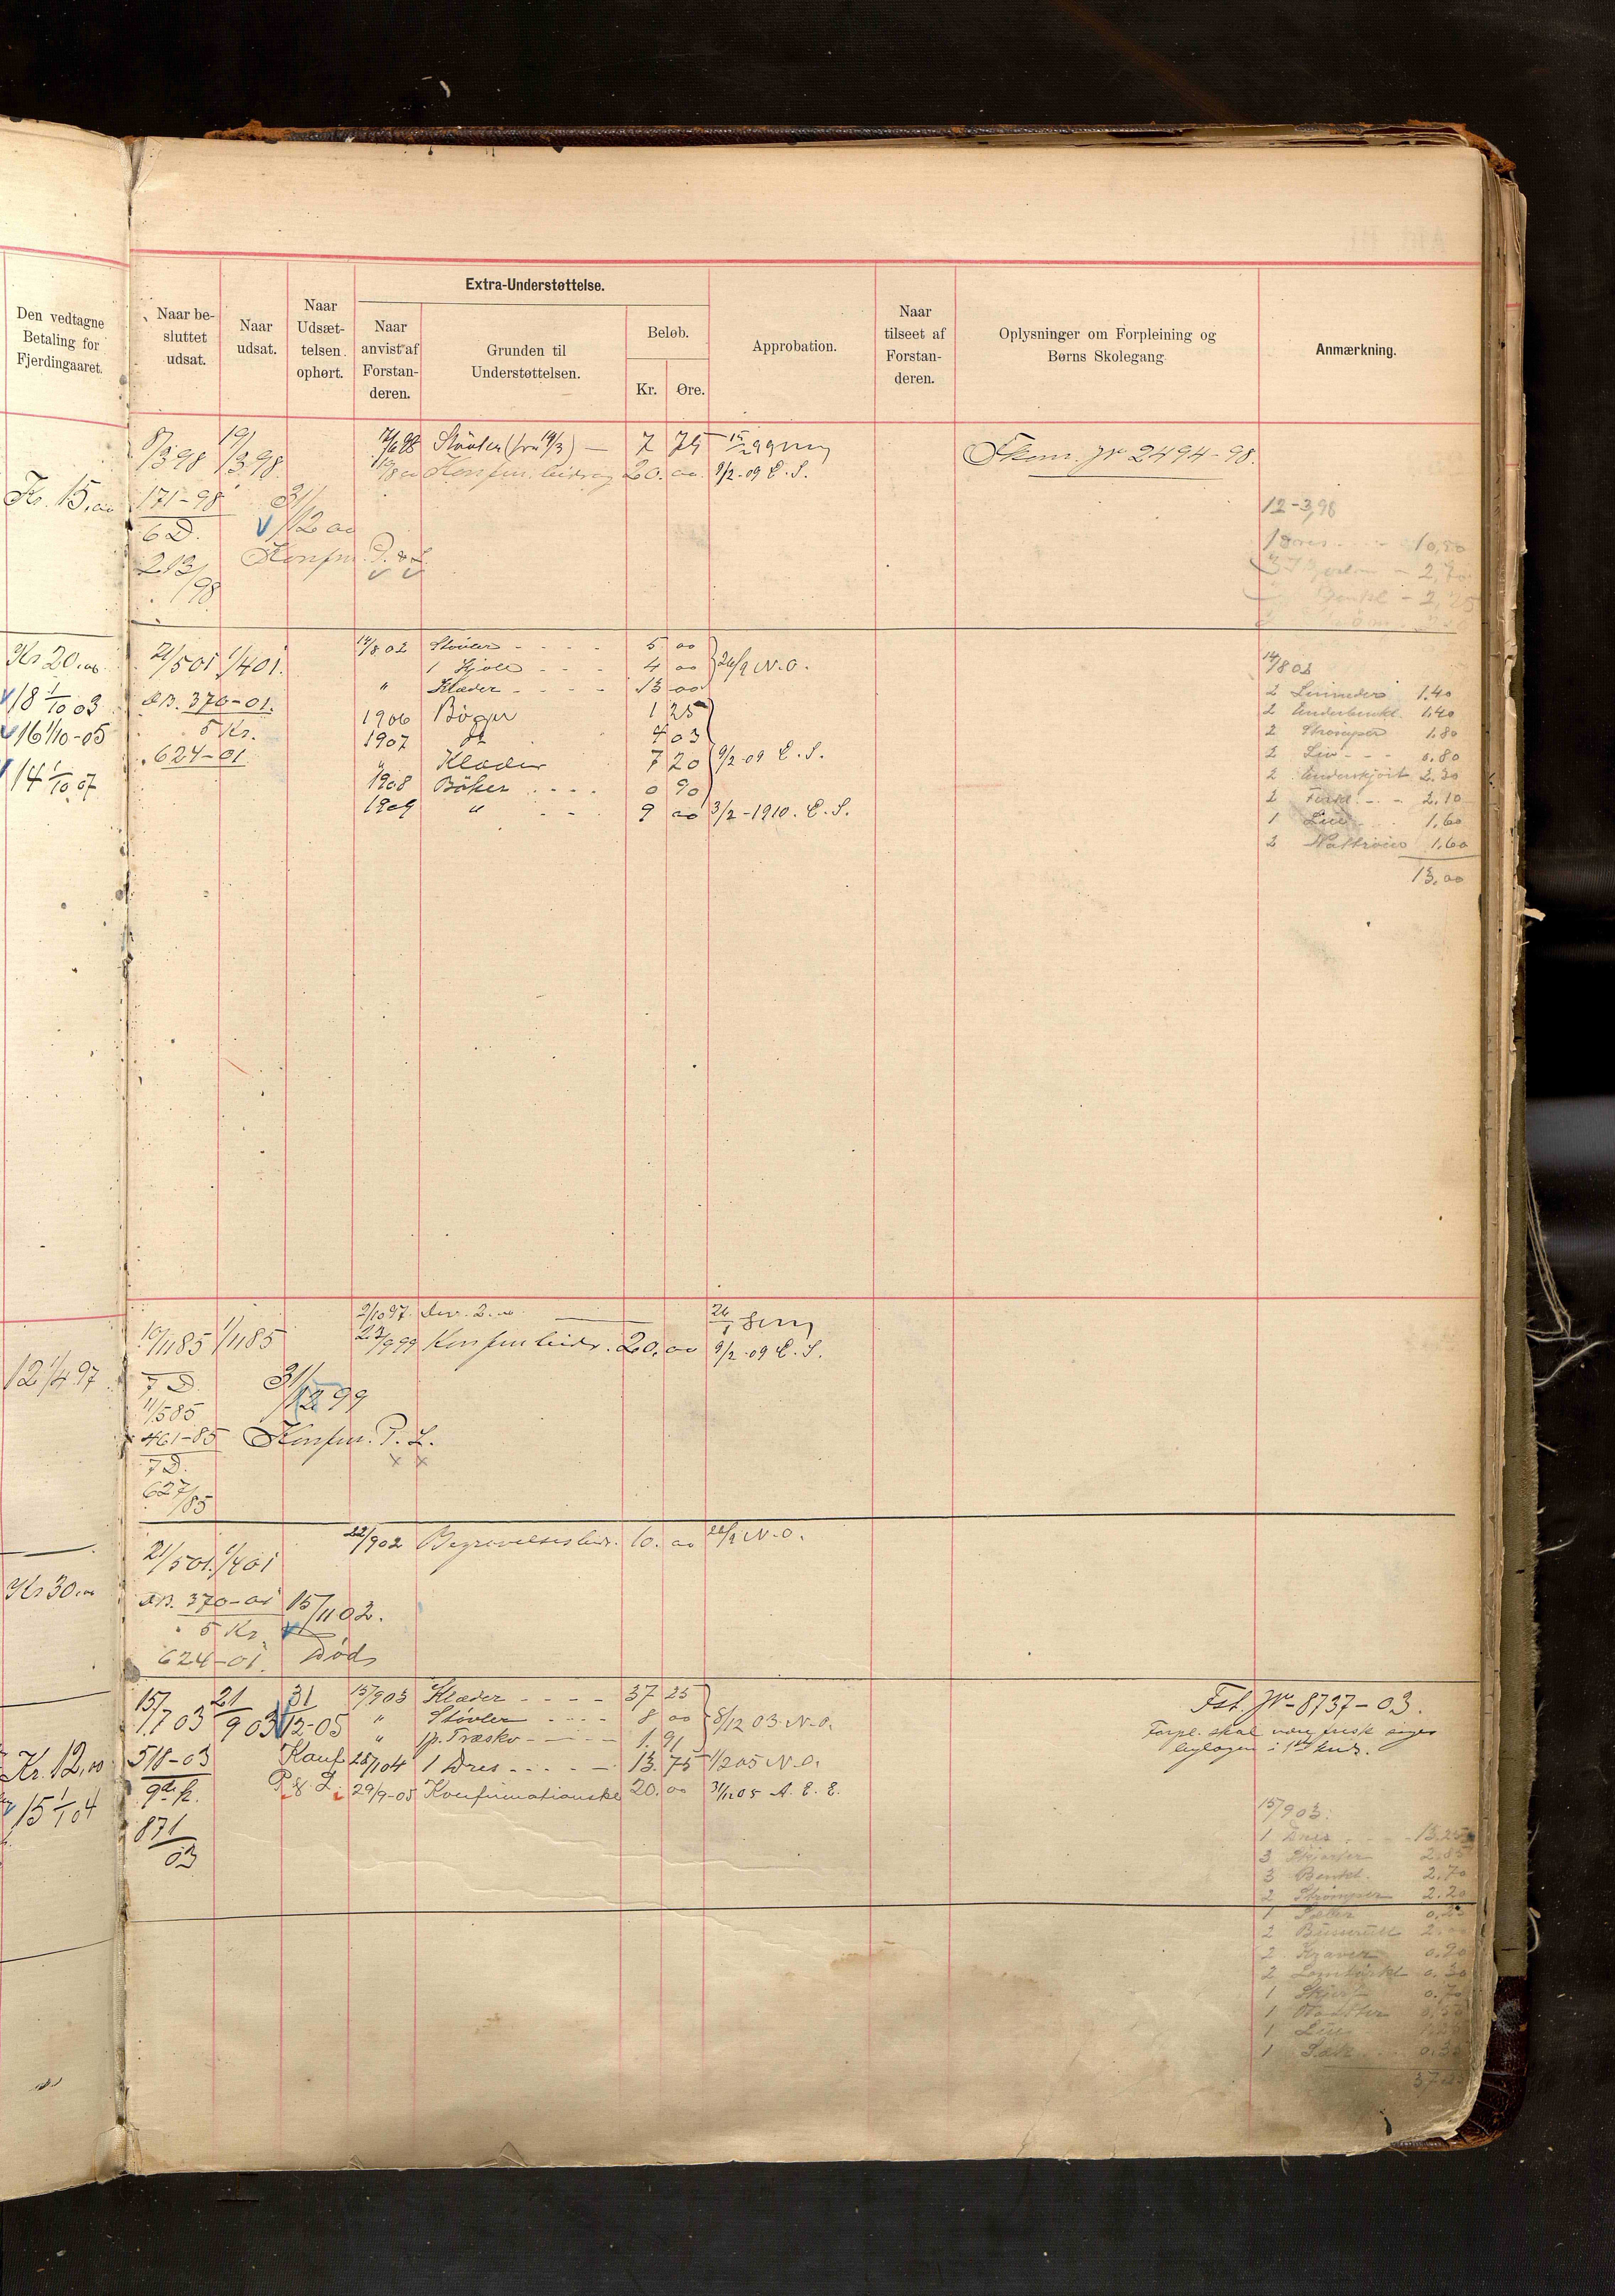 Den vedtagne
Betaling for
Fjerdingaaret.
Naar be-
sluttet
udsat.
Naar
udsat.
Naar
Udsæt-
telsen
ophørt.
Extra-Understøttelse.
Naar
anvist af
Forstan-
deren.
Grunden til
Understøttelsen.
Beløb.
Kr. Øre.
Approbation.
Naar
tilseet af
Forstan-
deren.
Oplysninger om Forpleining og
Børns Skolegang
Anmærkning.
Kr. 15,00
8/3 98 19/3 98
171-98
6 D.
213/98
31/12 00
Konfm. P. & L.
7 75
20. 00 9/2-09 E. S.
Fkom. Jr 2494-98.
12-3,98
1 Dres 10,50
Kr 20.00
18 1/10 03
16 1/10-05
14 1/10 07
21/5 01 1/4 01.
AB. 370-01.
5 Kr.
624-01
14/8 02 Støvler 5 00
1 Kjole 4 00 24/9 N.O.
" Klæder 13 00
1906 Bøger 1 25
1907 4 03
" Klæder 7 20 9/2-09 E. S.
1908 Bøker 0 90
1909 " 9 00 3/2-1910. E. S.
14/8 02
2 1.40
2 Underbenkl. 1.40
2 Strømper 1.80
2 Liv 0.80
2 Underskjört 2.30
2 Forkl. 2.10
1 Lue 1.60
2 Nattrøier 1.60
13,00
12 1/4 97
10/11 85 1/11 85
7 D.
11/5 85
461-85
7 D.
627/85
31/12 99
Konfm. P. L.
2/10 97.
23/9 99 Konfm bidr. 20. 00 9/2-09 E. S.
Kr 30.00
21/5 01. 1/4 01
AB. 370-01
5 Kr.
624-01.
15/11 02.
Død
22/9 02 Begravelsesbidr. 10. 00 22/9 N.O.
Kr. 12,00
15 1/1 04
15/7 03 21/9 03 31/12-05
518-03
9de k.
871/03
Konf
P & L.
15/9 03 Klæder 37 25
" Støvler 8 00 8/12 03 N.O.
" 1 p. Træsko 1. 91
28/1 04 1 Dres 13. 75 1/2 05 N.O.
29/9-05 Konfirmationskl 20. 00 31/12 05 A. E. E.
Fst. Jr-8737-03.
Forpl. skal være frisk siger
15/9 03.
1 Dres 13.25
3 Skjorter 2.85
3 Benkl. 2.70
2 Strømper 2.20
1 Seler
2 Busserull 2.
2 Kraver 0.90
2 Lomtørkl 0.30
1 Skjerf 0.70
1 Vadsker
1 Lue
1 Sæk 0.30
37.25